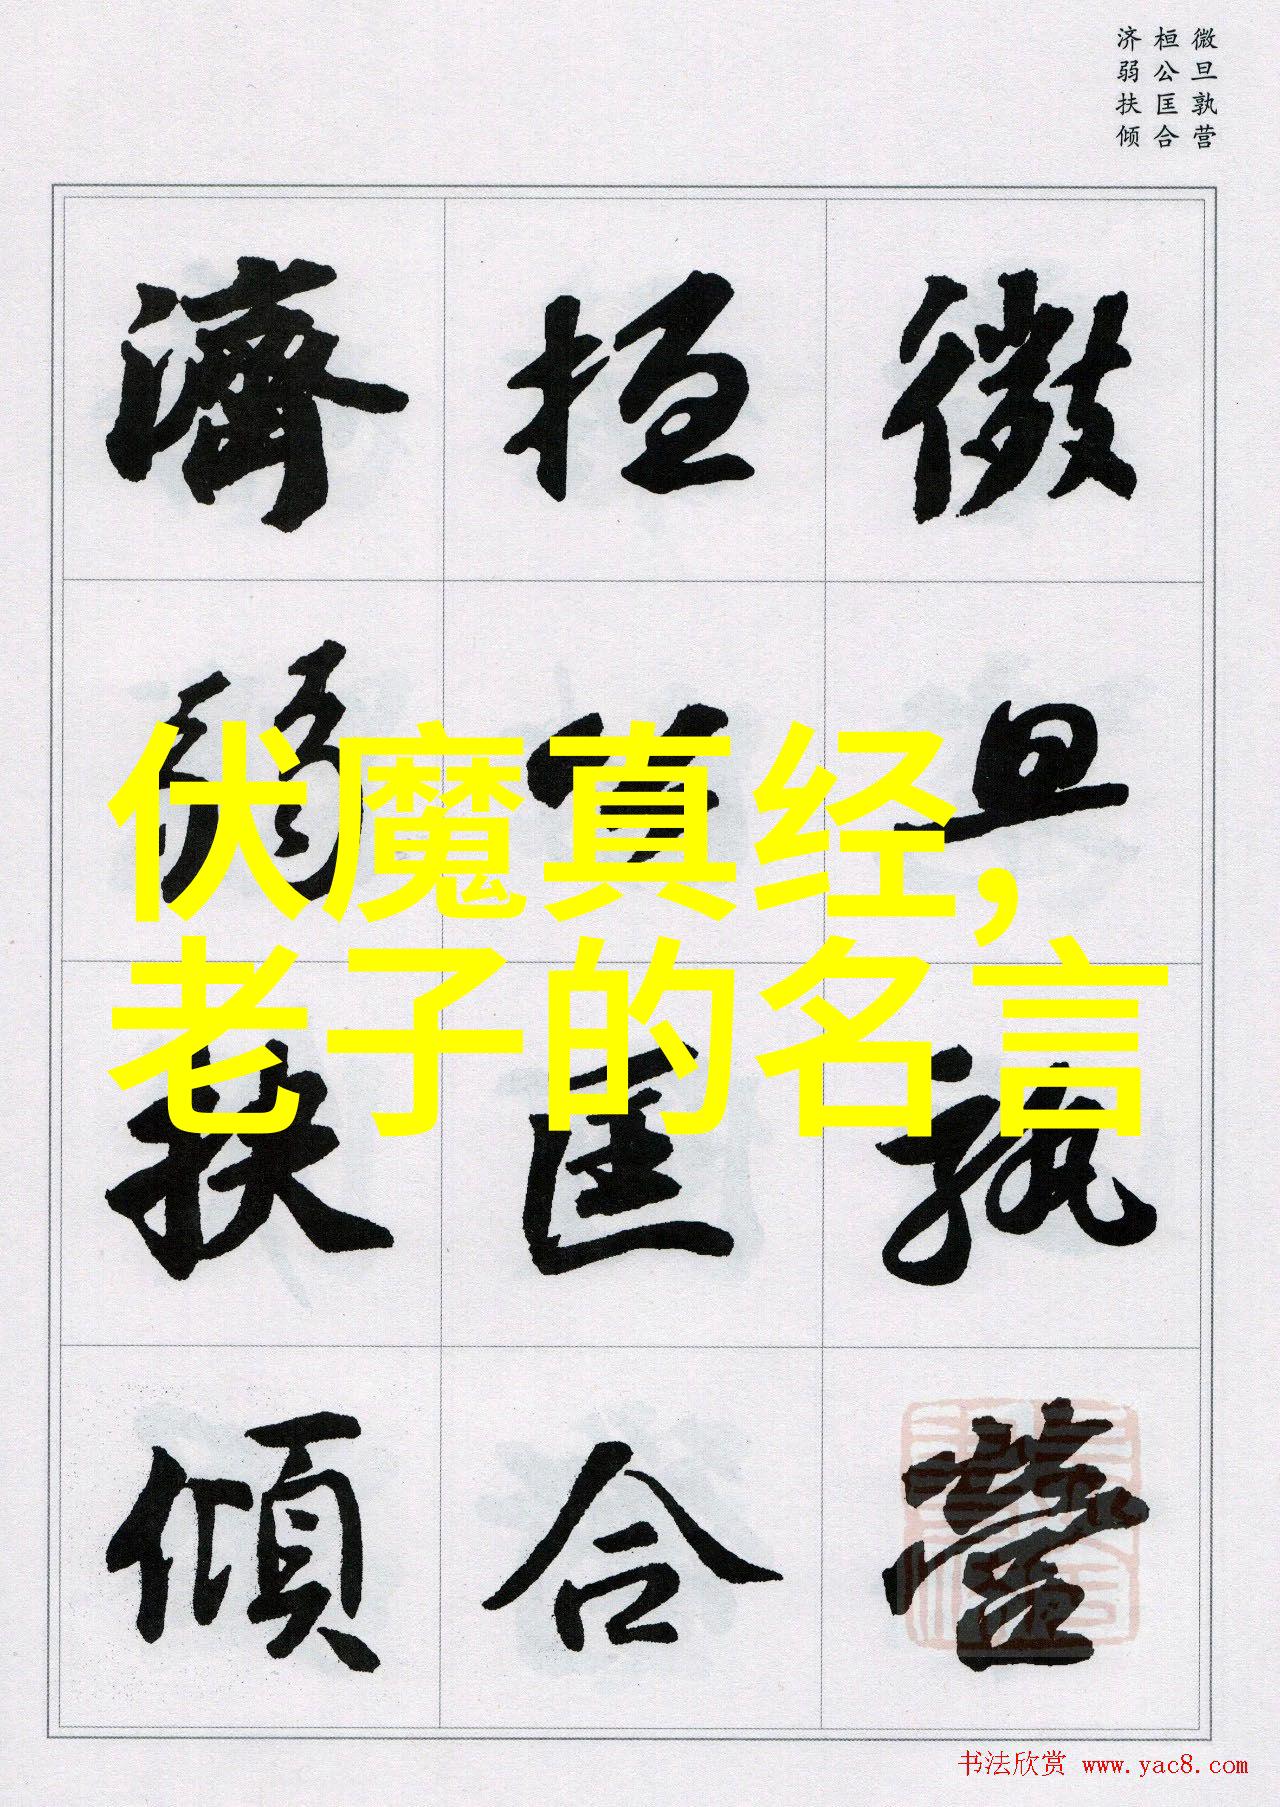 微旦孰营
桓公匡合
济弱扶倾
微旦孰營
桓公匡合
濟弱扶傾
伏魔真经,
老子的名言
书法欣赏 www.yac8.com